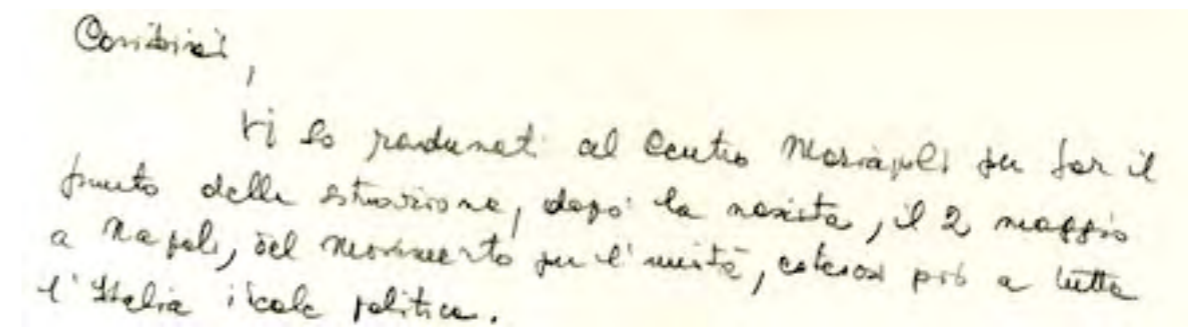 Carissimi,
Vi so radunati al Centro Mariapoli per far il
punto della situazione, dopo la nascita, il 2 maggio
a Napoli, del Movimento per l'unità, estesosi poi a tutta
l'Italia politica.